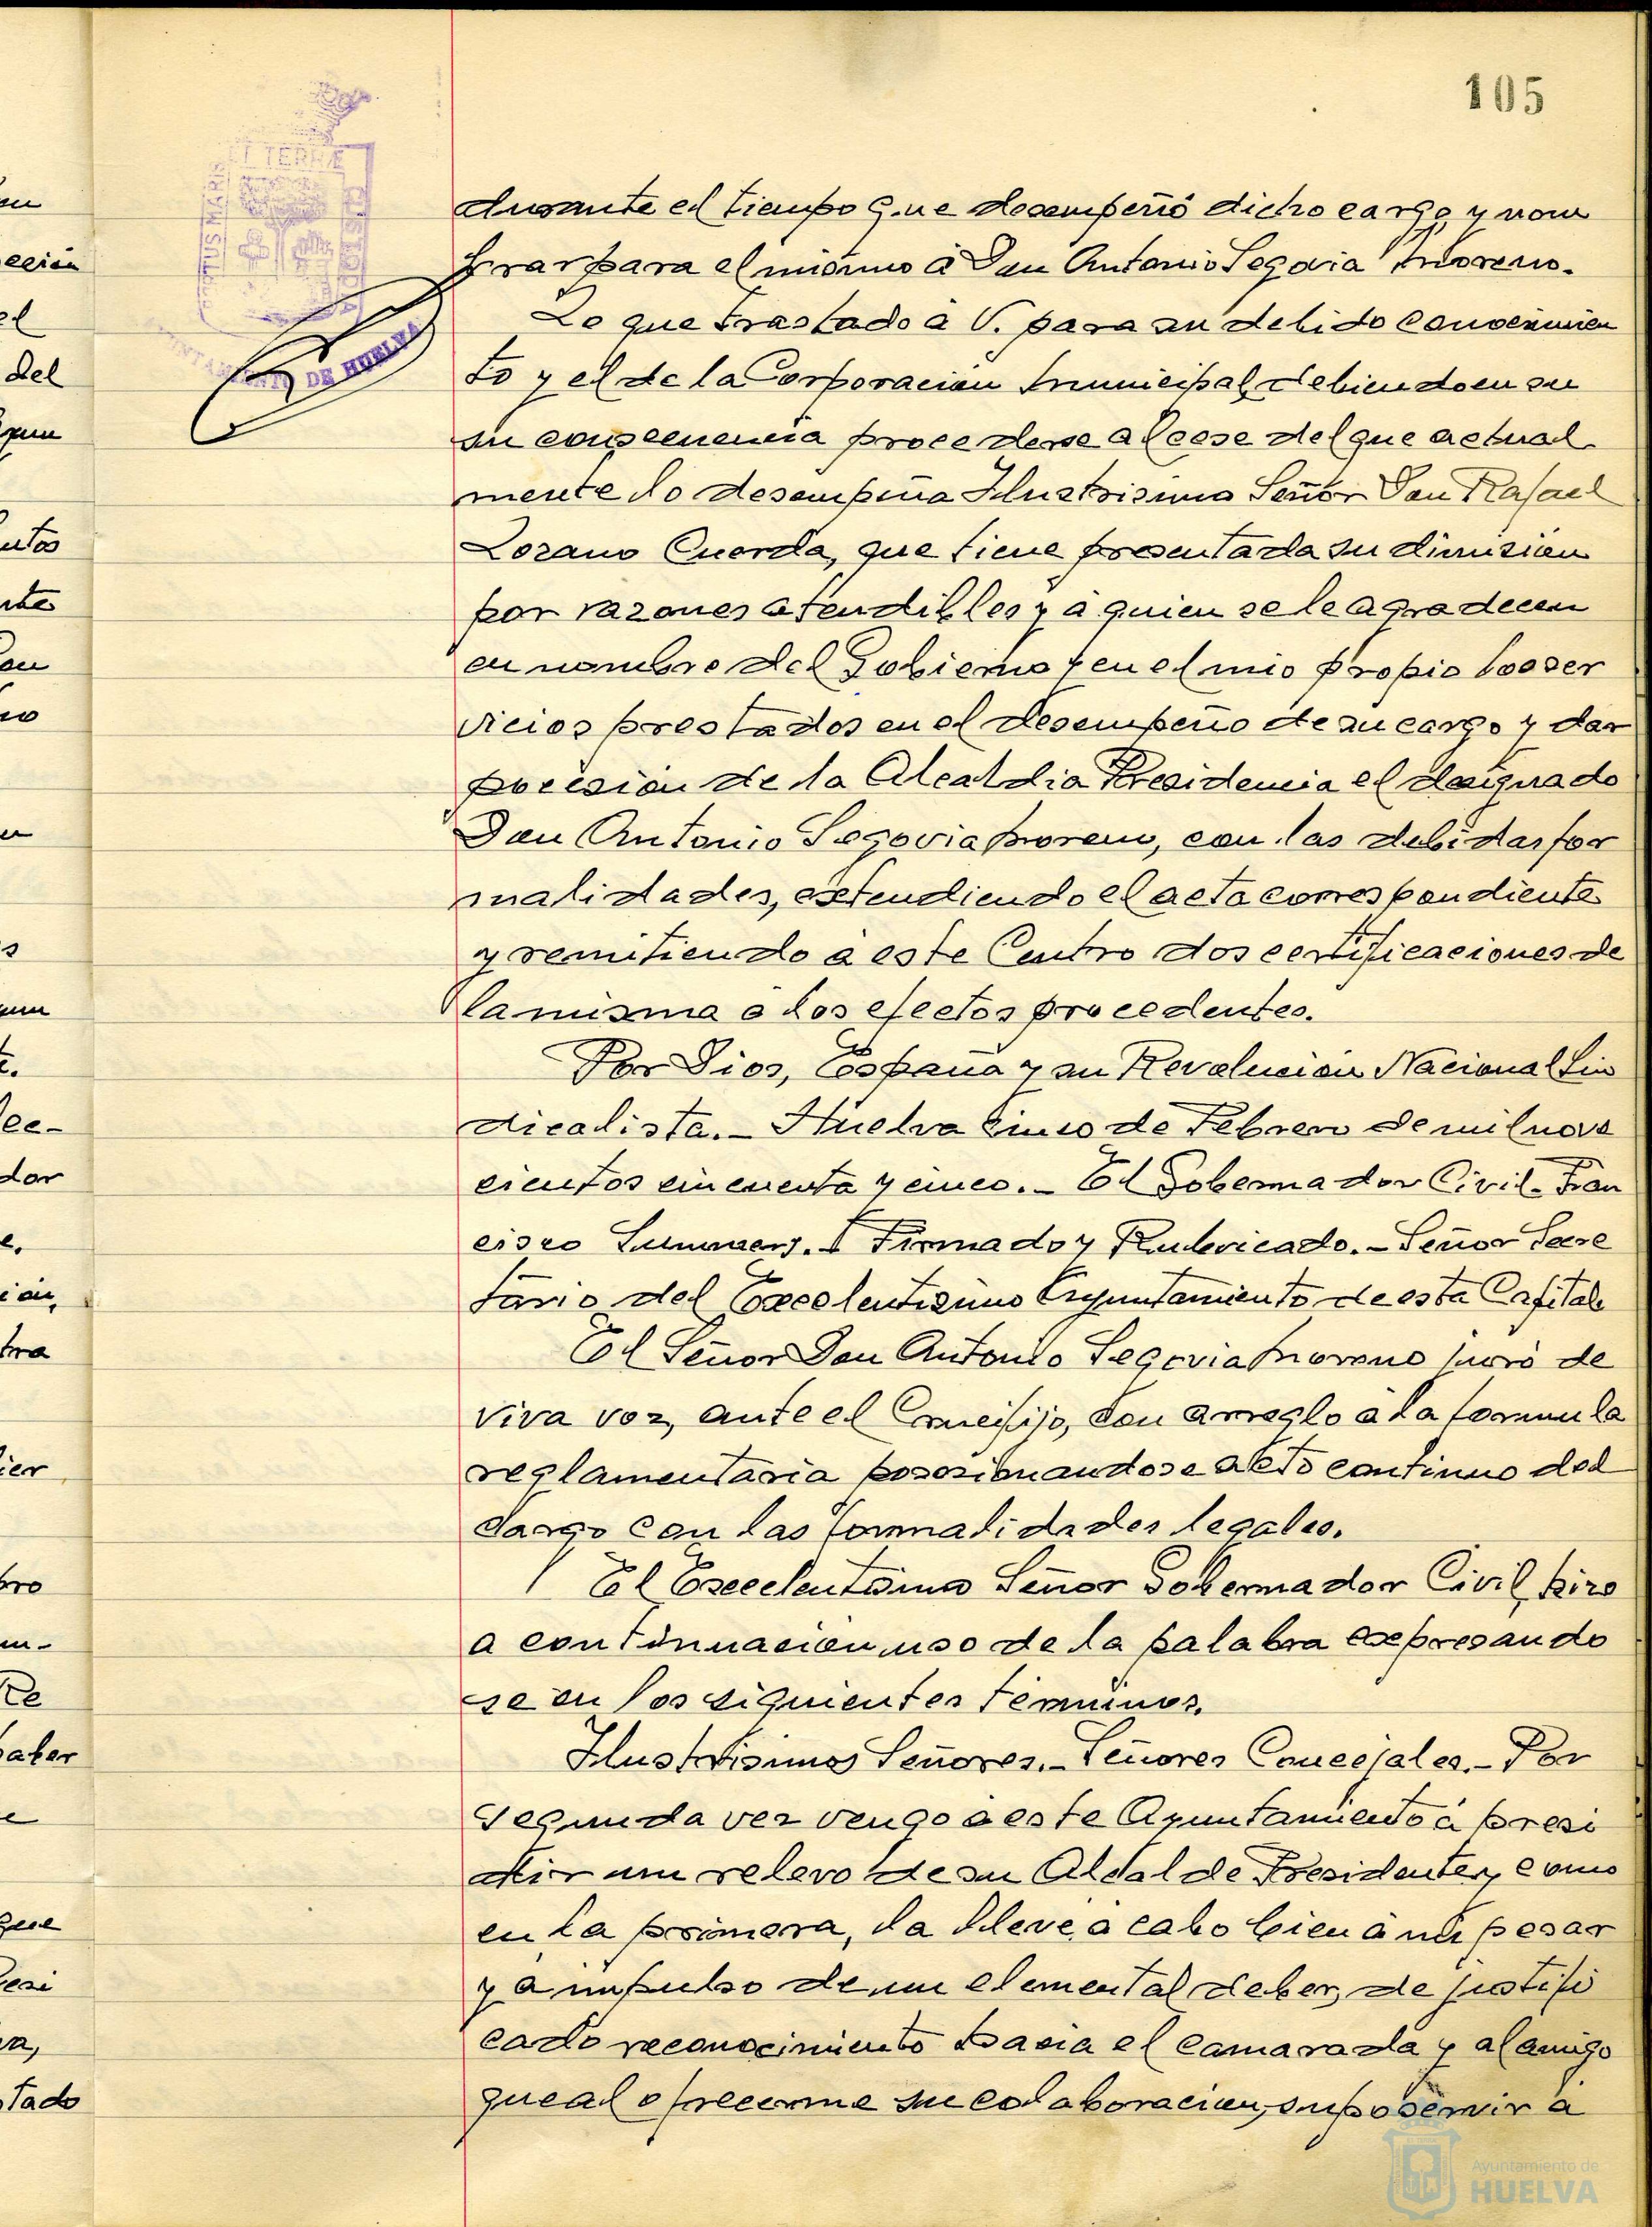 105
durante el tiempo que desempeñó dicho cargo, y nom
brar para el mismo á Don Antonio Segovia Moreno.
Lo que traslado a V. para su debido conocimien
to y el de la Corporacion Municipal, debiendo en su
su consecuencia procederse al cese del que actual
mente lo desempeña Ilustrisimo Señor Don Rafael
Lozano Cuerda, que tiene presentada su dimision
por razones atendibles y a quien se le agradecen
en nombre del Gobierno y en el mio propio los ser
vicios prestados en el desempeño de su cargo y dar
posesion de la Alcaldia Presidencia el designado
Don Antonio Segovia Moreno, con las debidas for
malidades, extendiendo el acta correspondiente
y remitiendo a este Centro dos certificaciones de
la misma a los efectos procedentes.
Por Dios, España y su Revolucion Nacional Sin
dicalista.- Huelva cinco de Febrero de mil nove
cientos cincuenta y cinco.- El Gobernador Civil- Fran
cisco Summers. Firmado y Rubricado.- Señor Secre
tario del Excelentisimo Ayuntamiento de esta Capital.
El Señor Don Antonio Segovia Moreno juró de
viva voz, ante el Crucifijo, con arreglo a la formula
reglamentaria posesionandose acto continuo del
cargo con las formalidades legales.
El Excelentisimo Señor Gobernador Civil, hizo
a continuacion uso de la palabra expresando
se en los siguientes terminos.
Ilustrisimos Señores.- Señores Concejales.- Por
segunda vez vengo a este Ayuntamiento á presi
dir un relevo de su Alcalde Presidente y, como
en la primera, la lleve a cabo bien á mi pesar
y a impulso de un elemental deber, de justifi
cado reconocimiento hacia el camarada y al amigo
que al ofrecerme su colaboracion, supo servir a
ET TERRÆ
PORTUS MARIS
CUSTODIA
AYUNTAMIENTO DE HUELVA
Ayuntamiento de
HUELVA